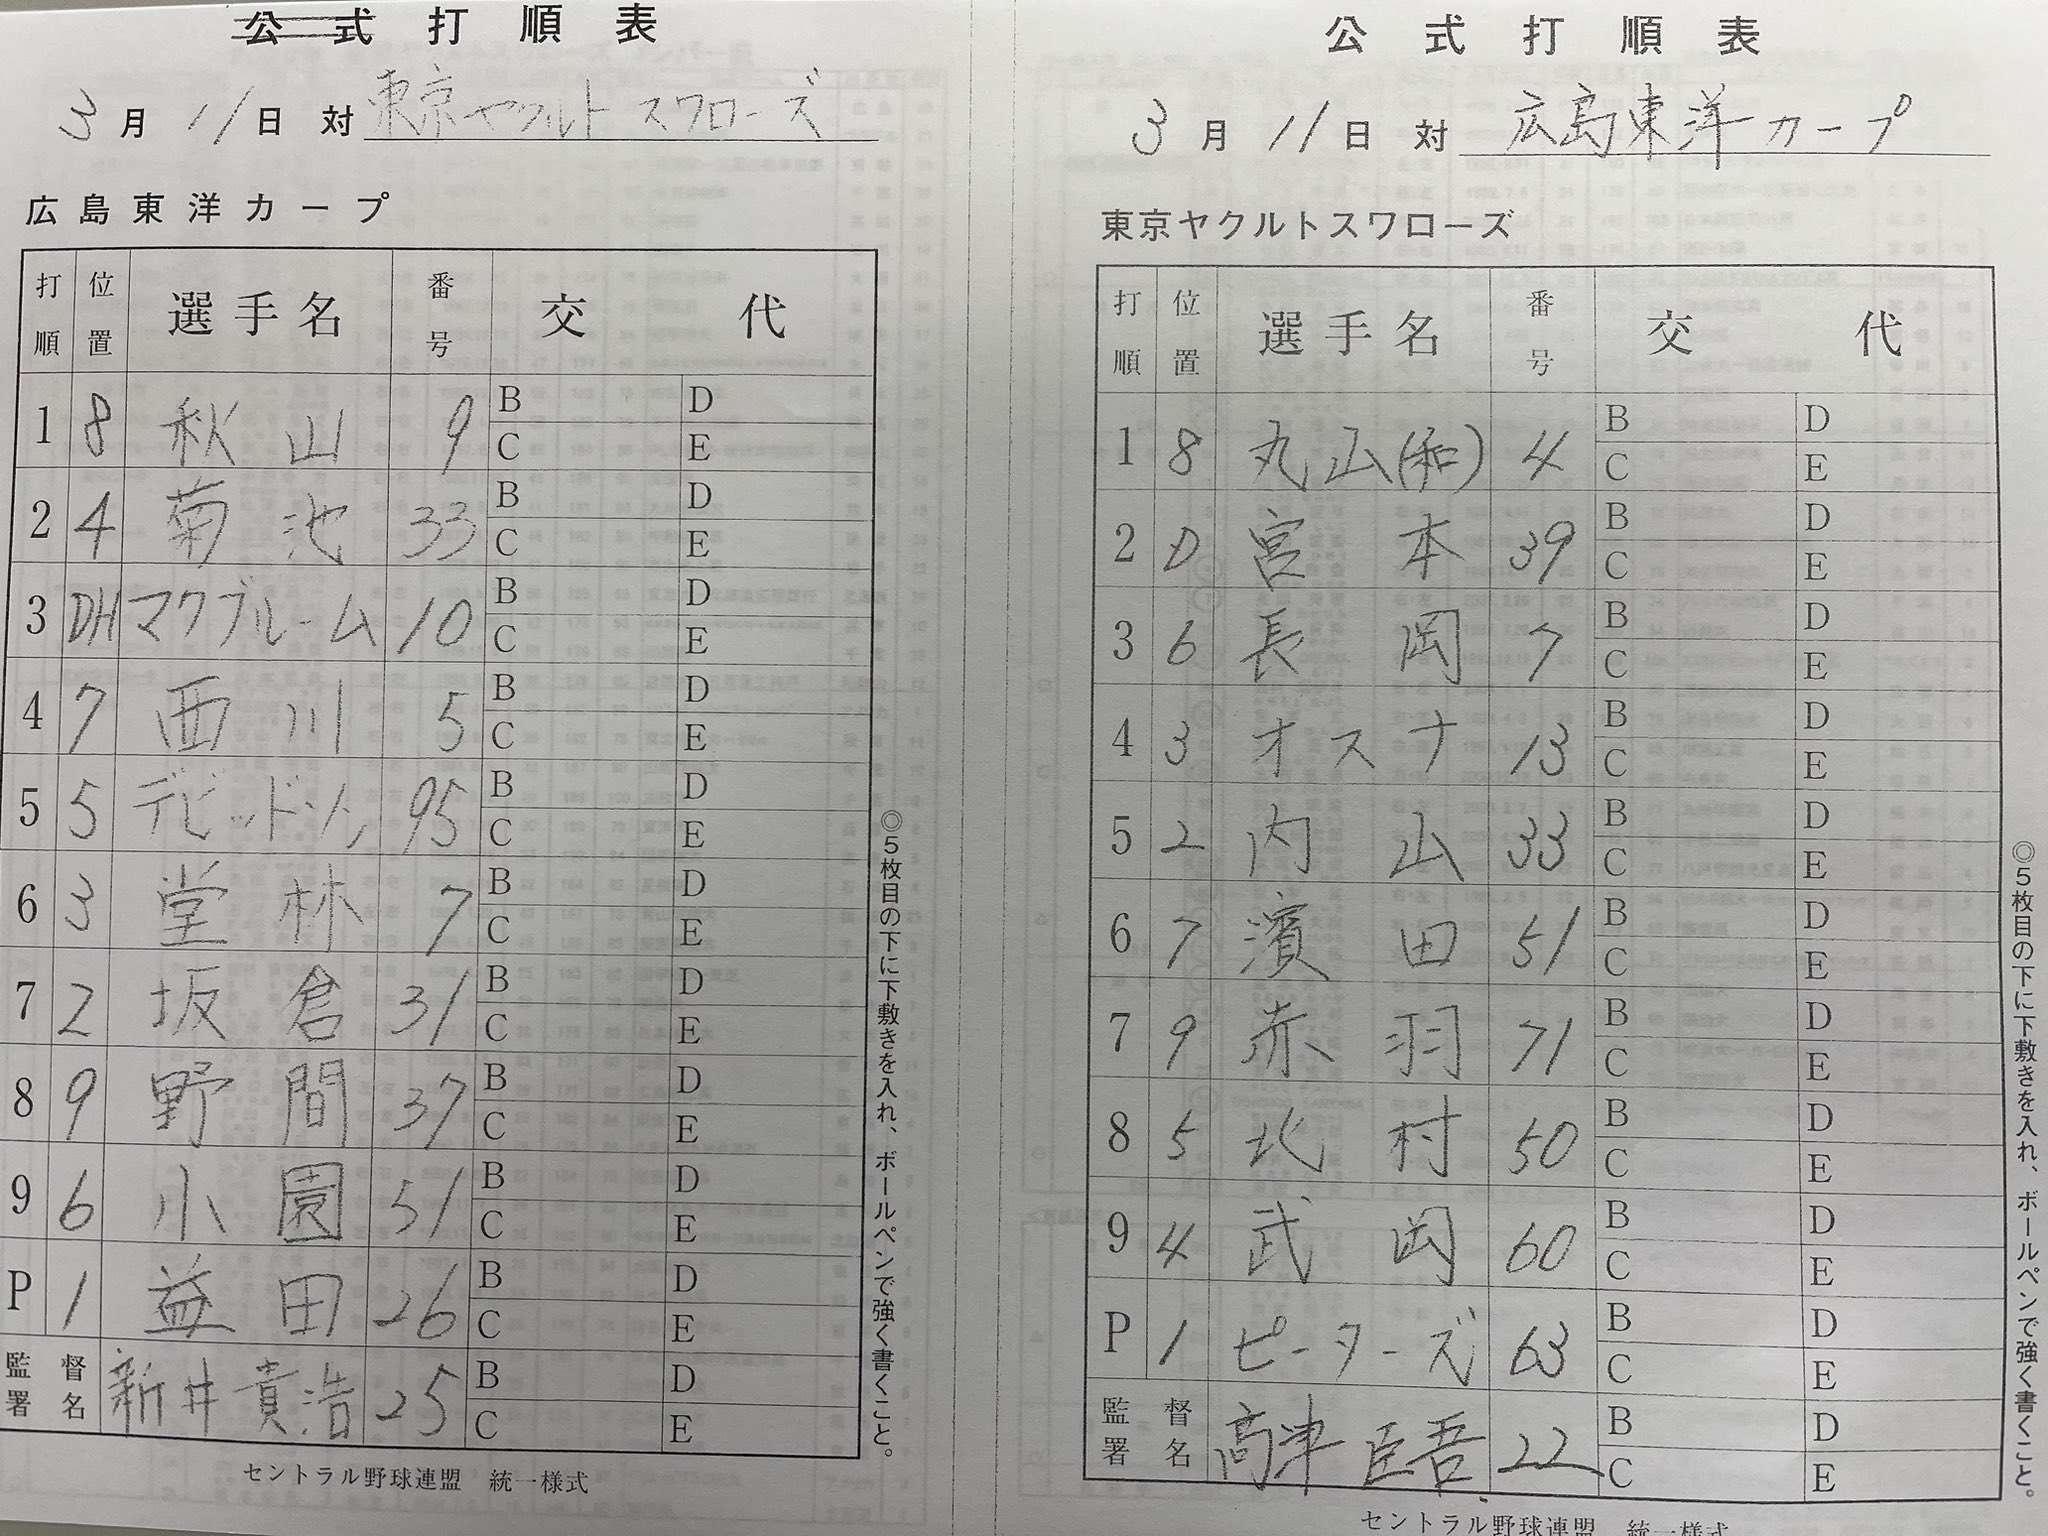 公式打順表
3月11日 対 東京ヤクルトスワローズ
広島東洋カープ
打順 位置 選手名 番号 交代
1 8 秋山 9 B D C E
2 4 菊池 33 B D C E
3 DH マクブルーム 10 B D C E
4 7 西川 5 B D C E
5 5 デビッドソン 95 B D C E
6 3 堂林 7 B D C E
7 2 坂倉 31 B D C E
8 9 野間 37 B D C E
9 6 小園 51 B D C E
P 1 益田 26 B D C E
監督署名 新井貴浩 25 B D C E
◎5枚目の下に下敷きを入れ、ボールペンで強く書くこと。
セントラル野球連盟 統一様式
公式打順表
3月11日 対 広島東洋カープ
東京ヤクルトスワローズ
打順 位置 選手名 番号 交代
1 8 丸山(和) 4 B D C E
2 D 宮本 39 B D C E
3 6 長岡 7 B D C E
4 3 オスナ 13 B D C E
5 2 内山 33 B D C E
6 7 濱田 51 B D C E
7 9 赤羽 71 B D C E
8 5 北村 50 B D C E
9 4 武岡 60 B D C E
P 1 ピーターズ 63 B D C E
監督署名 高津臣吾 22 B D C E
◎5枚目の下に下敷きを入れ、ボールペンで強く書くこと。
セントラル野球連盟 統一様式